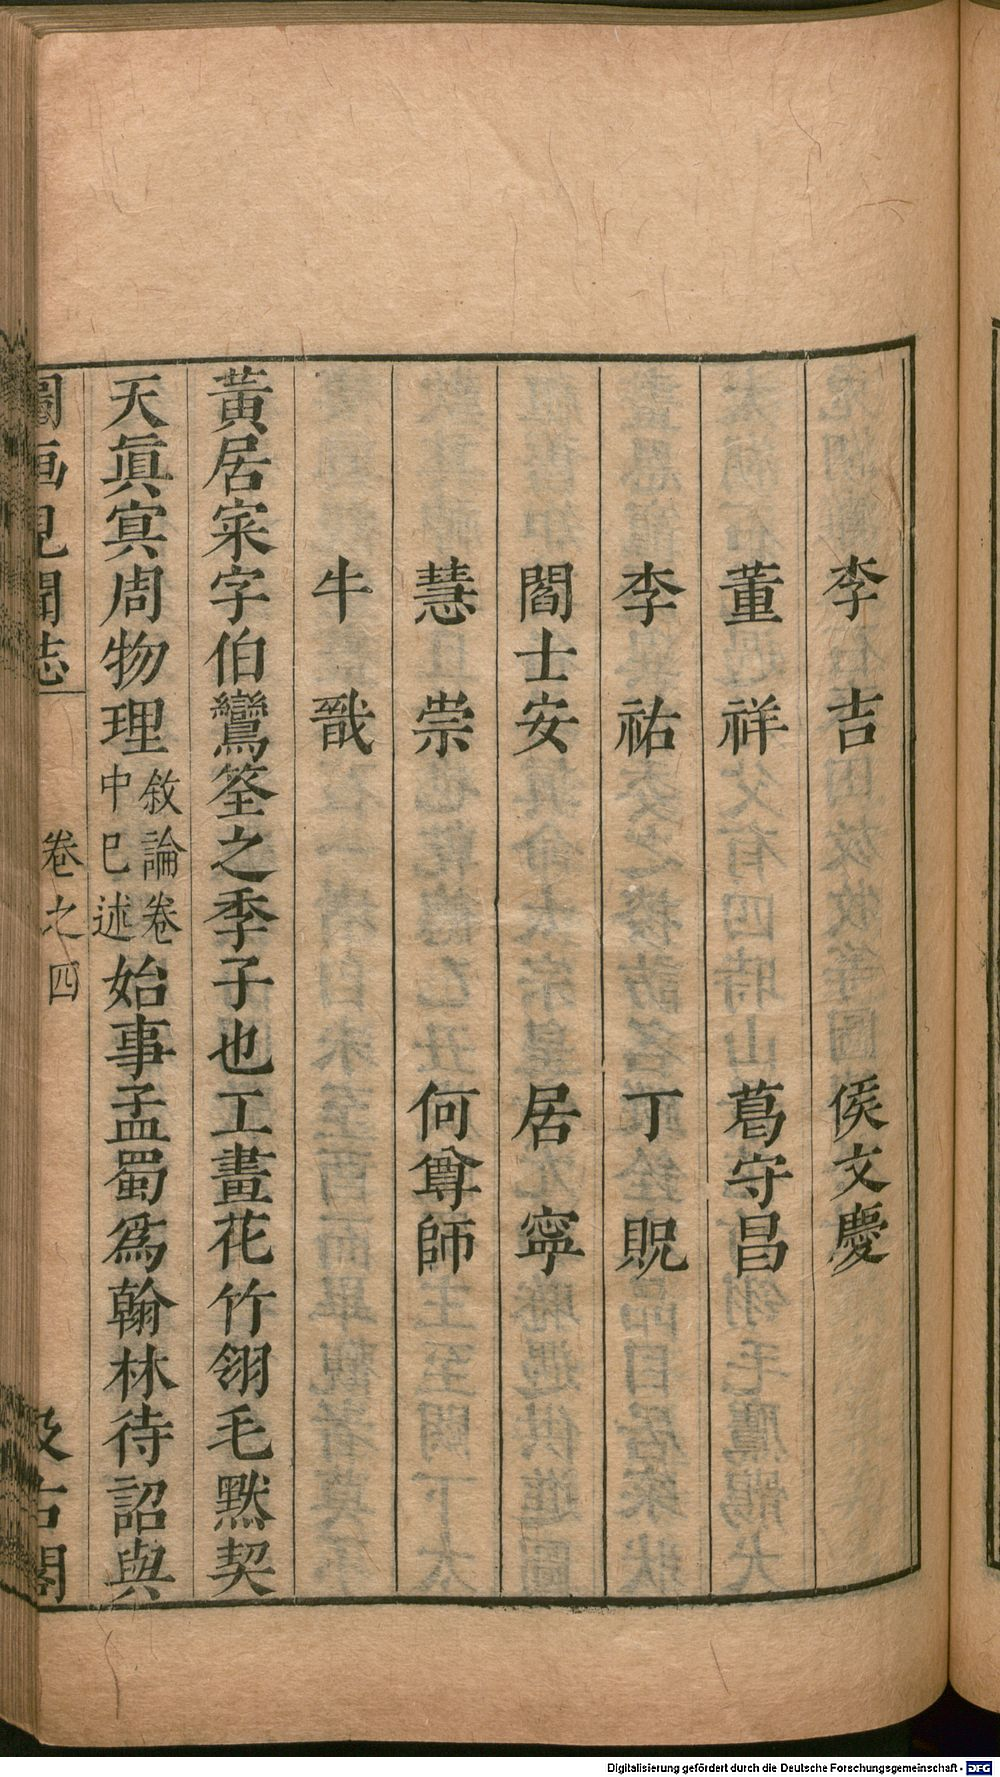 李吉 侯文慶
董祥 葛守昌
李祐 丁貺
閻士安 居寧
慧崇 何尊師
牛戩
黃居寀字伯鸞筌之季子也工畫花竹翎毛默契
天眞㝠周物理敘論卷中巳述始事孟蜀爲翰林待詔與
圖画見聞志 卷之四 汲古閣
Digitalisierung gefördert durch die Deutsche Forschungsgemeinschaft - DFG